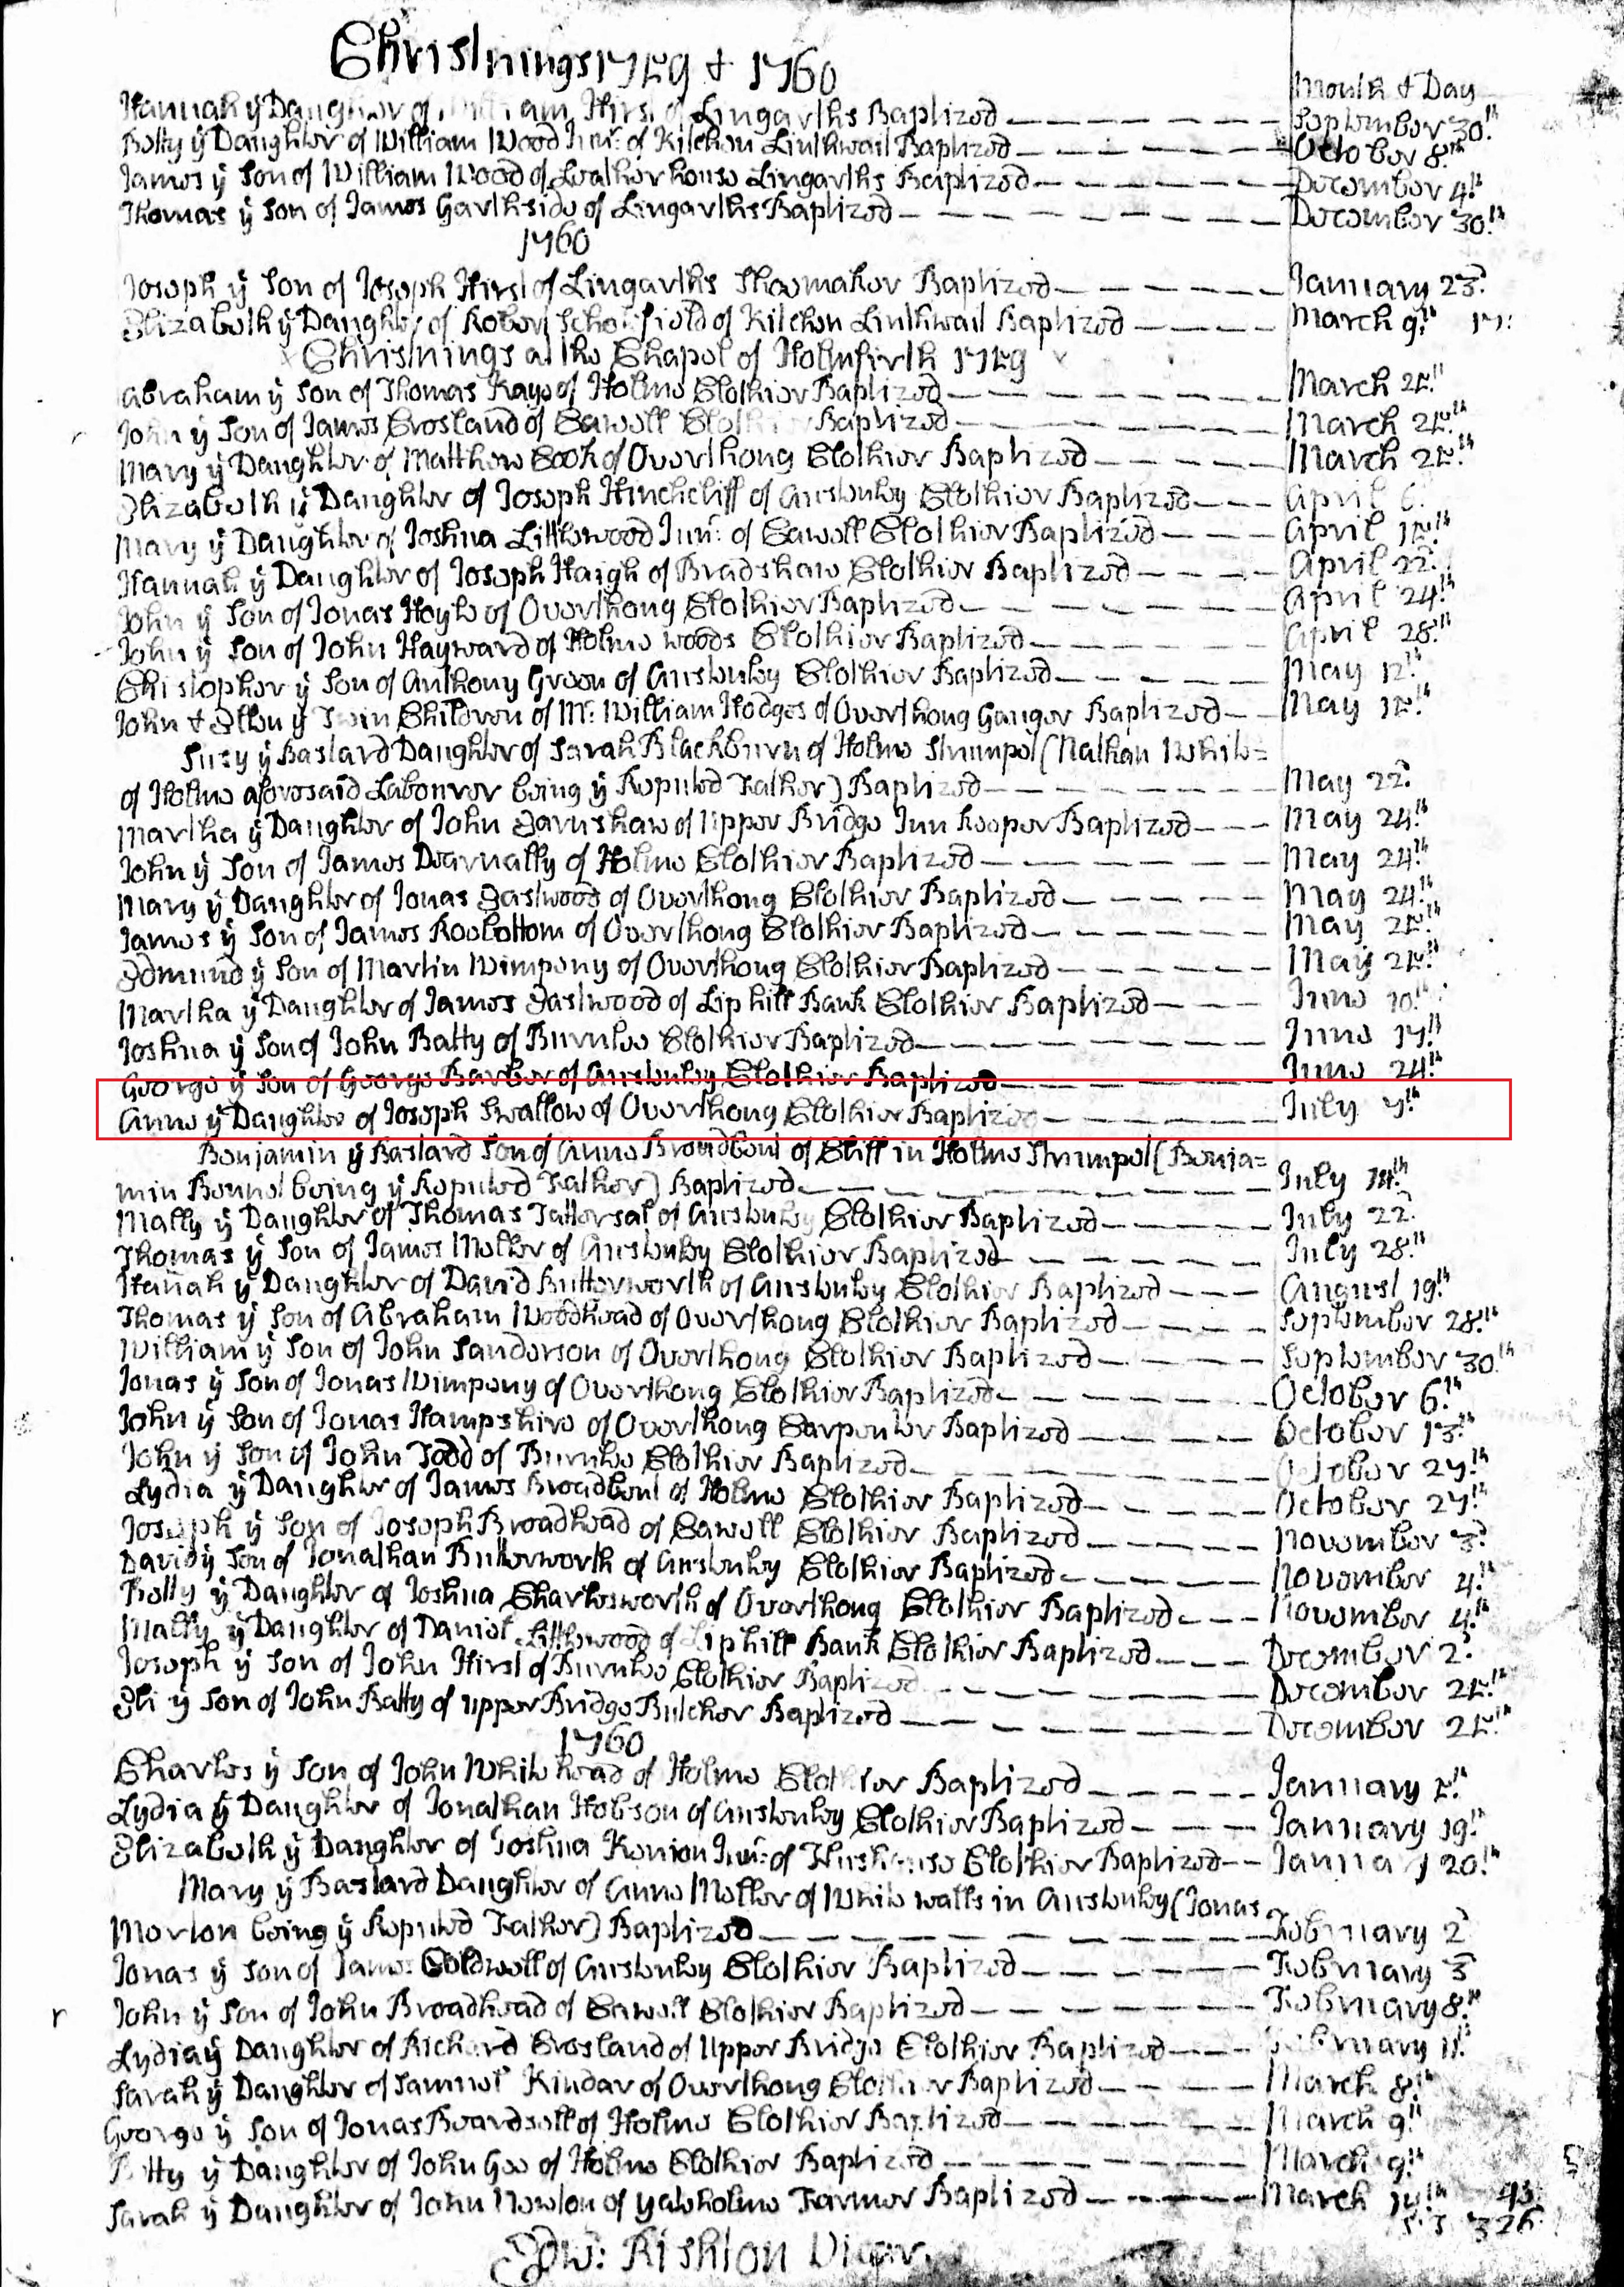 Christnings 1759 & 1760
Month & Day
Hannah ÿ Daughter of William Hirst of Lingarths Baptized — September 30.th
Betty ÿ Daughter of William Wood Junr. of Kitchen Linthwait Baptized — October 8.th
James ÿ Son of William Wood of Leatherhouse Lingarths Baptized — December 4.th
Thomas ÿ Son of James Garthside of Lingarths Baptized — December 30.th
1760
Joseph ÿ Son of Joseph Hirst of Lingarths Shoemaker Baptized — January 23.d
Elizabeth ÿ Daughter of Robert Scholefield of Kitchen Linthwait Baptized — March 9.th 17:
Christnings at the Chapel of Holmfirth 1759
Abraham ÿ Son of Thomas Kaye of Holme Clothier Baptized — March 25.th
John ÿ Son of James Crosland of Cawell Clothier Baptized — March 25.th
Mary ÿ Daughter of Matthew Cook of Overthong Clothier Baptized — March 25.th
Elizabeth ÿ Daughter of Joseph Hinchcliff of Austonley Clothier Baptized — April 6.
Mary ÿ Daughter of Joshua Littlewood Junr: of Cawell Clothier Baptized — April 15.th
Hannah ÿ Daughter of Joseph Haigh of Bradshaw Clothier Baptized — April 22.d
John ÿ Son of Jonas Hoyle of Overthong Clothier Baptized — April 24.th
John ÿ Son of John Hayward of Holme Woods Clothier Baptized — April 28.th
Christopher ÿ Son of Anthony Green of Austonley Clothier Baptized — May 12.th
John & Ellen ÿ Twin Children of Mr. William Hodges of Overthong Gauger Baptized — May 15.th
Susy ÿ Bastard Daughter of Sarah Blackburn of Holme Strumpet (Nathan White=
of Holme aforesaid Labourer being ÿ Reputed Father) Baptized — May 22.d
Martha ÿ Daughter of John Earnshaw of Upper Bridge Inn Keeper Baptized — May 24.th
John ÿ Son of James Dearnally of Holme Clothier Baptized — May 24.th
Mary ÿ Daughter of Jonas Eastwood of Overthong Clothier Baptized — May 24.th
James ÿ Son of James Roebottom of Overthong Clothier Baptized — May 25.th
Edmund ÿ Son of Martin Wimpeny of Overthong Clothier Baptized — May 25.th
Martha ÿ Daughter of James Eastwood of Liphill Bank Clothier Baptized — June 10.th
Joshua ÿ Son of John Batty of Burnlee Clothier Baptized — June 17.th
George ÿ Son of George Barber of Austonley Clothier Baptized — June 24.th
Anne ÿ Daughter of Joseph Swallow of Overthong Clothier Baptized — July 7.th
Benjamin ÿ Bastard Son of Anne Broadbent of Cliff in Holme Strumpet (Benja=
min Bennet being ÿ Reputed Father) Baptized — July 14.th
Mally ÿ Daughter of Thomas Tattersal of Austonley Clothier Baptized — July 22.d
Thomas ÿ Son of James Mellor of Austonley Clothier Baptized — July 28.th
Hanah ÿ Daughter of David Butterworth of Austonley Clothier Baptized — August 19.th
Thomas ÿ Son of Abraham Woodhead of Overthong Clothier Baptized — September 28.th
William ÿ Son of John Sanderson of Overthong Clothier Baptized — September 30.th
Jonas ÿ Son of Jonas Wimpeny of Overthong Clothier Baptized — October 6.th
John ÿ Son of Jonas Hampshire of Overthong Carpenter Baptized — October 13.th
John ÿ Son of John Todd of Burnlee Clothier Baptized — October 27.th
Lydia ÿ Daughter of James Broadbent of Holme Clothier Baptized — October 27.th
Joseph ÿ Son of Joseph Broadhead of Cawell Clothier Baptized — November 3.d
David ÿ Son of Jonathan Butterworth of Austonley Clothier Baptized — November 4.th
Betty ÿ Daughter of Joshua Charlesworth of Overthong Clothier Baptized — November 4.th
Mally ÿ Daughter of Daniel Littlewood of Liphill Bank Clothier Baptized — December 2.d
Joseph ÿ Son of John Hirst of Burnlee Clothier Baptized — December 25.th
Eli ÿ Son of John Batty of upper Bridge Butcher Baptized — December 25.th
1760
Charles ÿ Son of John Whitehead of Holme Clothier Baptized — January 5.th
Lydia ÿ Daughter of Jonathan Hobson of Austonley Clothier Baptized — January 19.th
Elizabeth ÿ Daughter of Joshua Kenion Junr: of Clothier Baptized — January 20.th
Mary ÿ Bastard Daughter of Anne Mellor of White walls in Austonley (Jonas
Morton being ÿ Reputed Father) Baptized — February 2.d
Jonas ÿ Son of James Coldwell of Austonley Clothier Baptized — February 3.d
John ÿ Son of John Broadhead of Cawell Clothier Baptized — February 8.th
Lydia ÿ Daughter of Richard Crosland of Upper Bridge Clothier Baptized — February 11.th
Sarah ÿ Daughter of Samuel Kinder of Overthong Clothier Baptized — March 8.th
George ÿ Son of Jonas Beardsell of Holme Clothier Baptized — March 9.th
Betty ÿ Daughter of John Gee of Holme Clothier Baptized — March 9.th
Sarah ÿ Daughter of John Newton of Yateholme Farmer Baptized — March 14.th 43
326
Edw: Rishton Vicar.